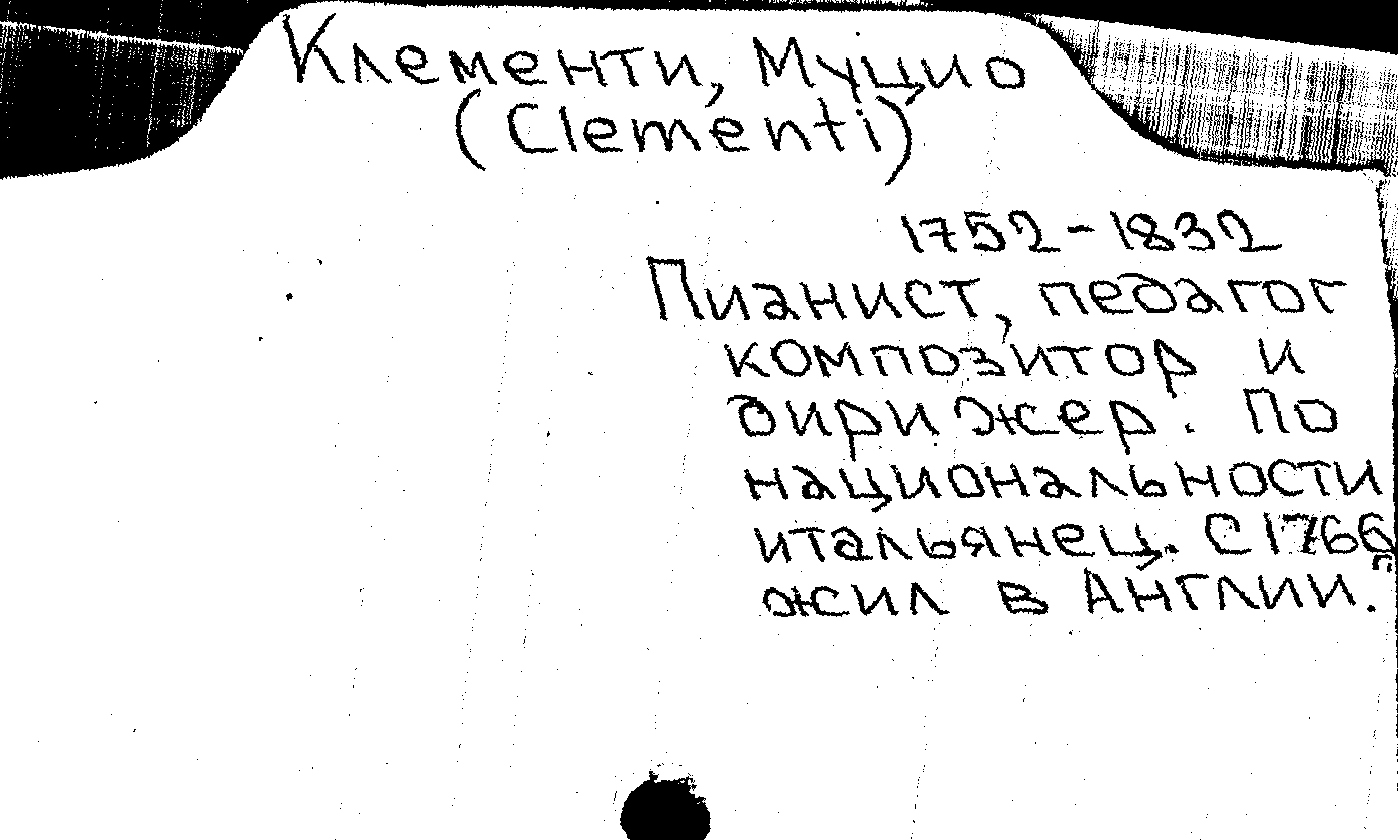 Клементи, Муцио
(Clementi)
1752-1832
Пианист, педагог
композитор и
дирижер. По
национальности
итальянец. С 1766
жил в Англии.